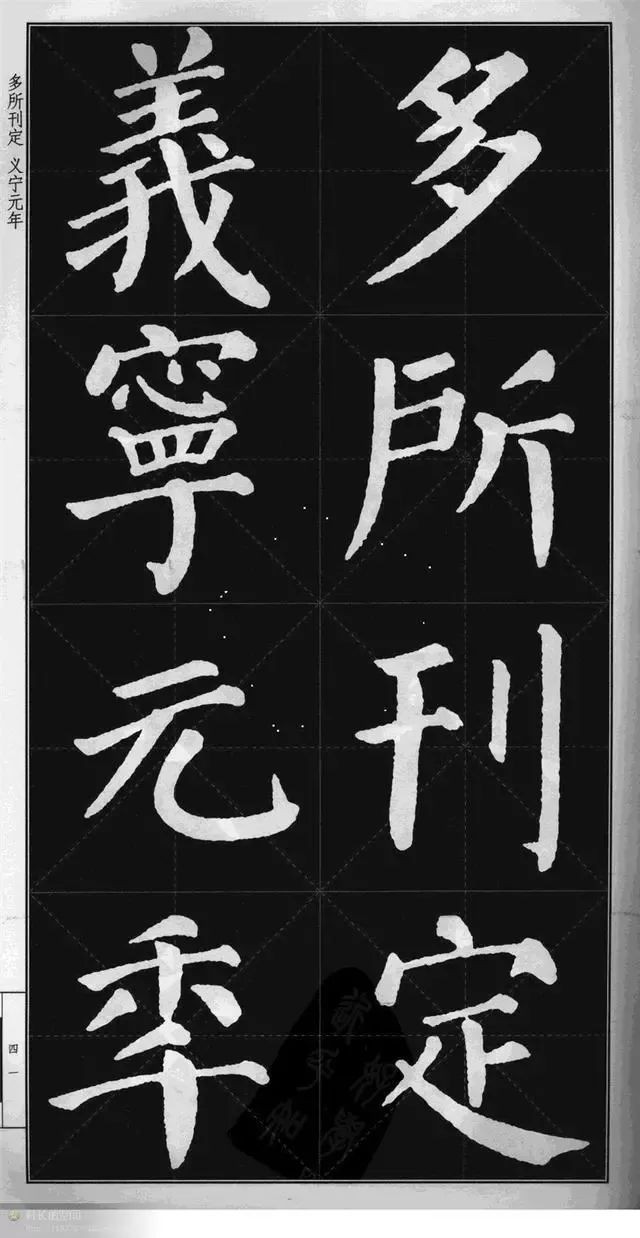 多所刊定
義寧元年
多所刊定 义宁元年
四一